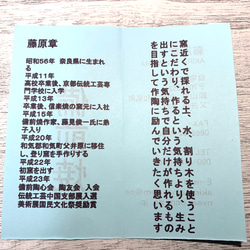 藤原章
昭和56年　奈良県に生まれる
平成11年
高校卒業後、京都伝統工芸専門学校に入学
平成13年
卒業後、信楽焼の窯元に入社
平成15年
備前焼作家、藤見俊一氏に弟子入り
平成20年
和気郡和気町父井原に移住し、登り窯を手作りする
平成22年
初窯を出す
平成23年
備前陶心会　陶友会　入会
伝統工芸中国支部展入選
美術展国民文化祭奨励賞
窯近くで採れる土、水、割り木を使うこと
にこだわり、作るという気持ちより、生み
出すという気持ちで自分だけが作れるもの
を目指して作陶に励んでいきたいと思います